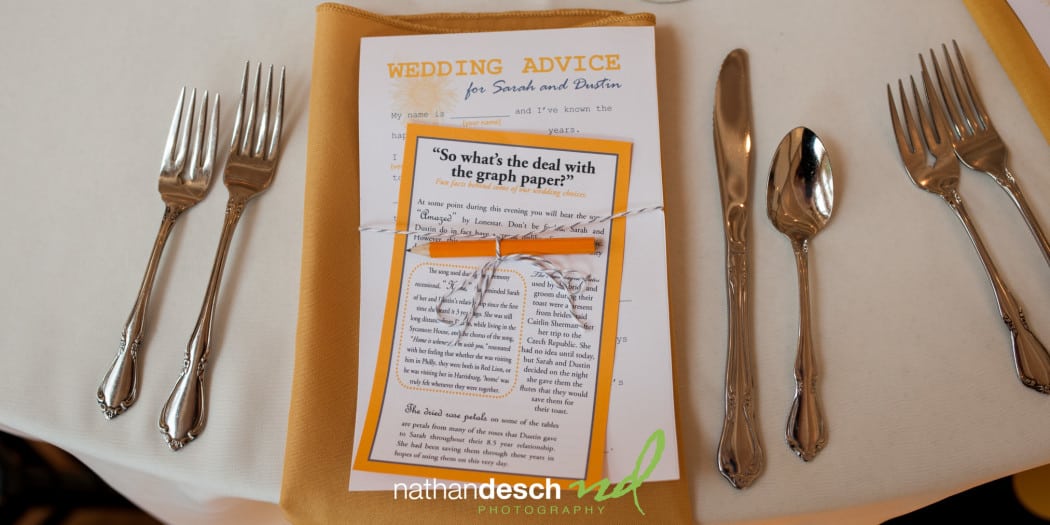 WEDDING ADVICE
for Sarah and Dustin
My name is and I've known the
(your name)
years.
I
to
"So what's the deal with
the graph paper?"
Fun facts behind some of our wedding choices
At some point during this evening you will hear the
"Amazed" by Lonestar. Don't be Sarah and
Dustin do in fact have
However, this
The song used during ceremony
recessional, reminded Sarah
of her and Dustin's since the first
time she heard it 3 years ago. She was still
long distance from Dustin, while living in the
Sycamore House, and the chorus of the song,
"Home is whenever I'm with you," resonated
with her feeling that whether she was visiting
him in Philly, they were both in Red Lion, or
he was visiting her in Harrisburg, 'home' was
truly felt whenever they were together.
used by bride and
groom during their
toast were a present
from bridesmaid
Caitlin Sheeman after
her trip to the
Czech Republic. She
had no idea until today,
but Sarah and Dustin
decided on the night
she gave them the
flutes that they would
save them for
their toast.
The dried rose petals on some of the tables
are petals from many of the roses that Dustin gave
to Sarah throughout their 8.5 year relationship.
She had been saving them through those years in
hopes of using them on this very day.
nathandesch nd
PHOTOGRAPHY